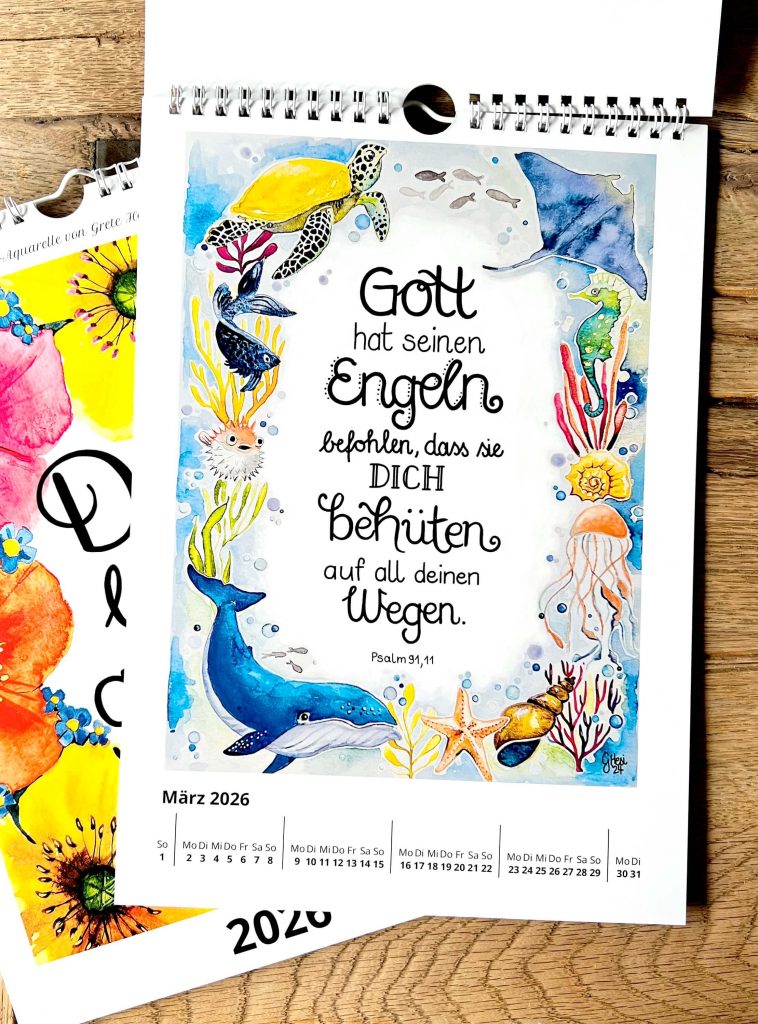 Aquarelle von Grete
Gott
hat seinen
Engeln
befohlen, dass sie
DICH
behüten
auf all deinen
Wegen.
Psalm 91,11
GHesi
24
März 2026
So Mo Di Mi Do Fr Sa So Mo Di Mi Do Fr Sa So Mo Di Mi Do Fr Sa So Mo Di Mi Do Fr Sa So Mo Di
1 2 3 4 5 6 7 8 9 10 11 12 13 14 15 16 17 18 19 20 21 22 23 24 25 26 27 28 29 30 31
2026